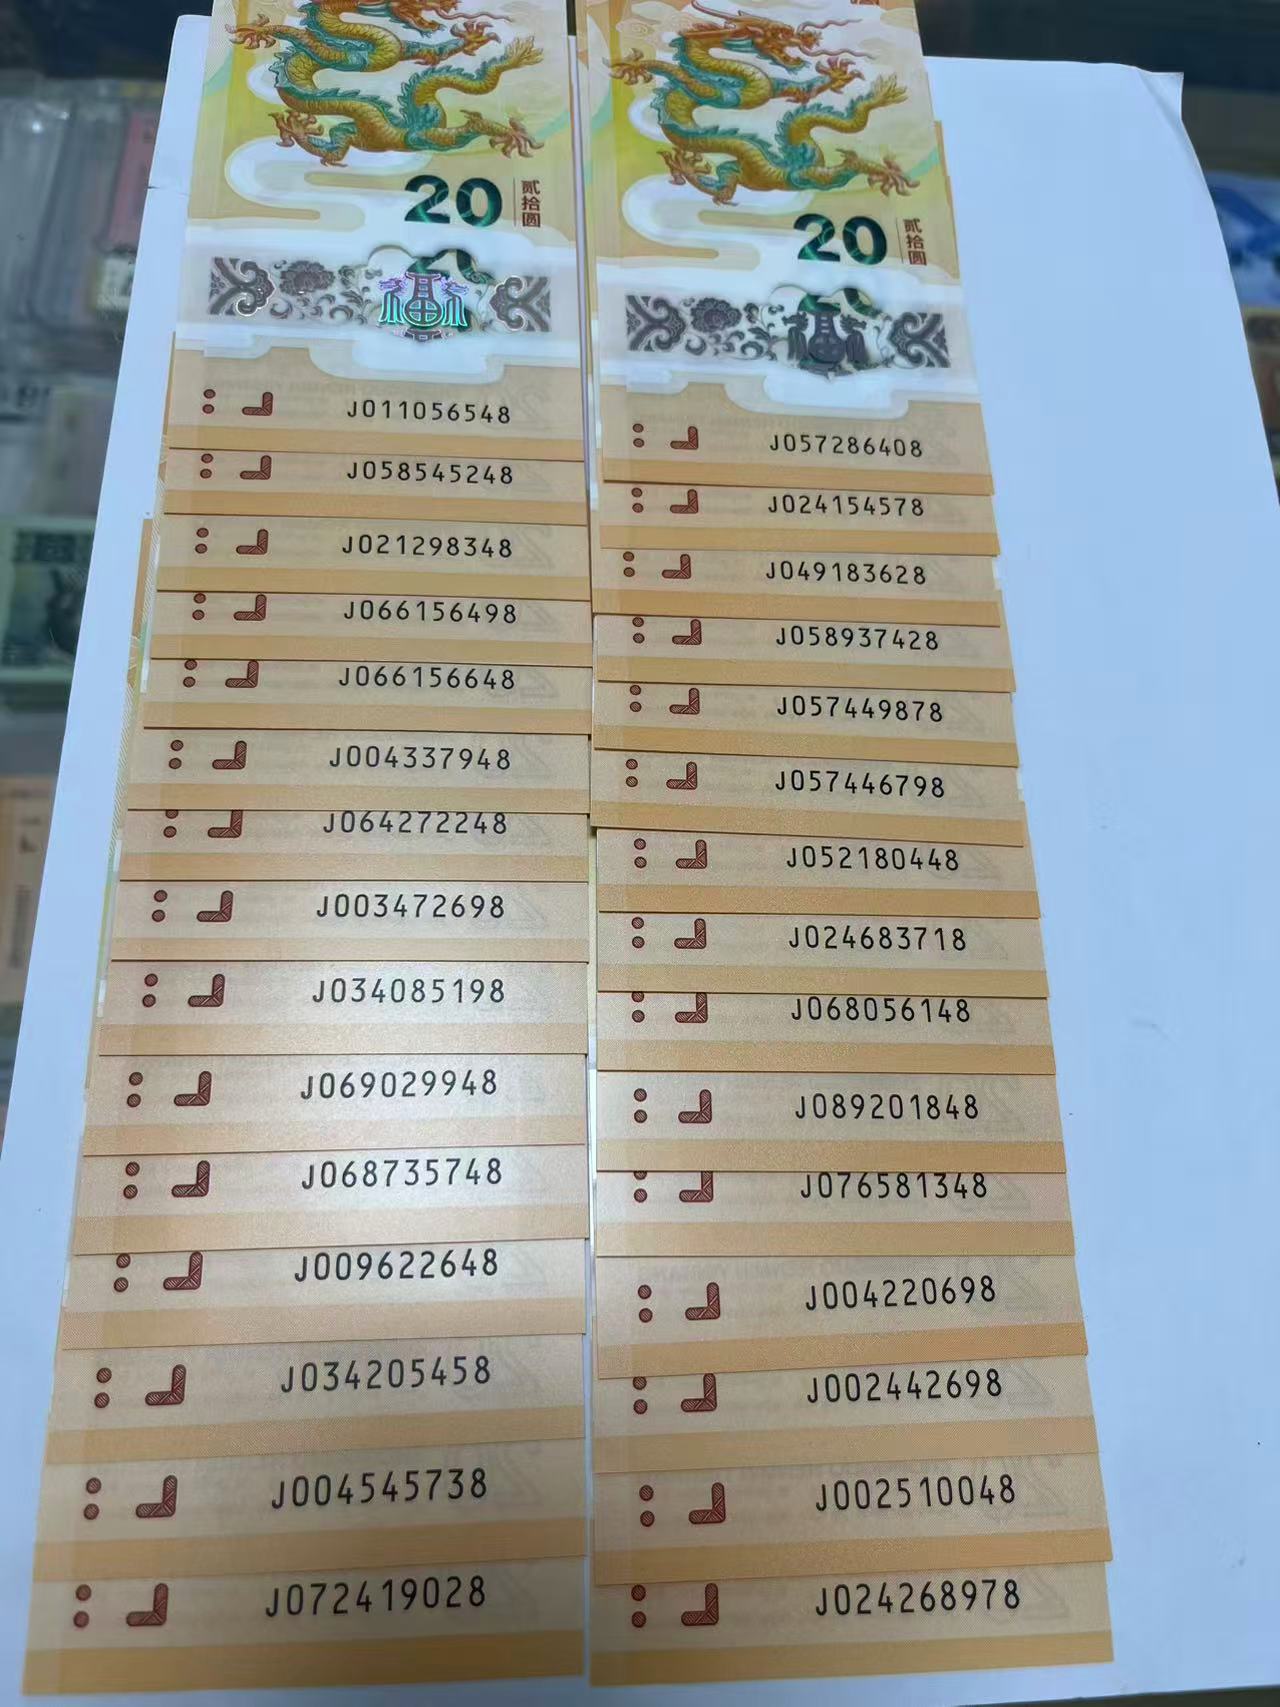 20
贰拾圆
J011056548
J058545248
J021298348
J066156498
J066156648
J004337948
J064272248
J003472698
J034085198
J069029948
J068735748
J009622648
J034205458
J004545738
J072419028
20
贰拾圆
J057286408
J024154578
J049183628
J058937428
J057449878
J057446798
J052180448
J024683718
J068056148
J089201848
J076581348
J004220698
J002442698
J002510048
J024268978